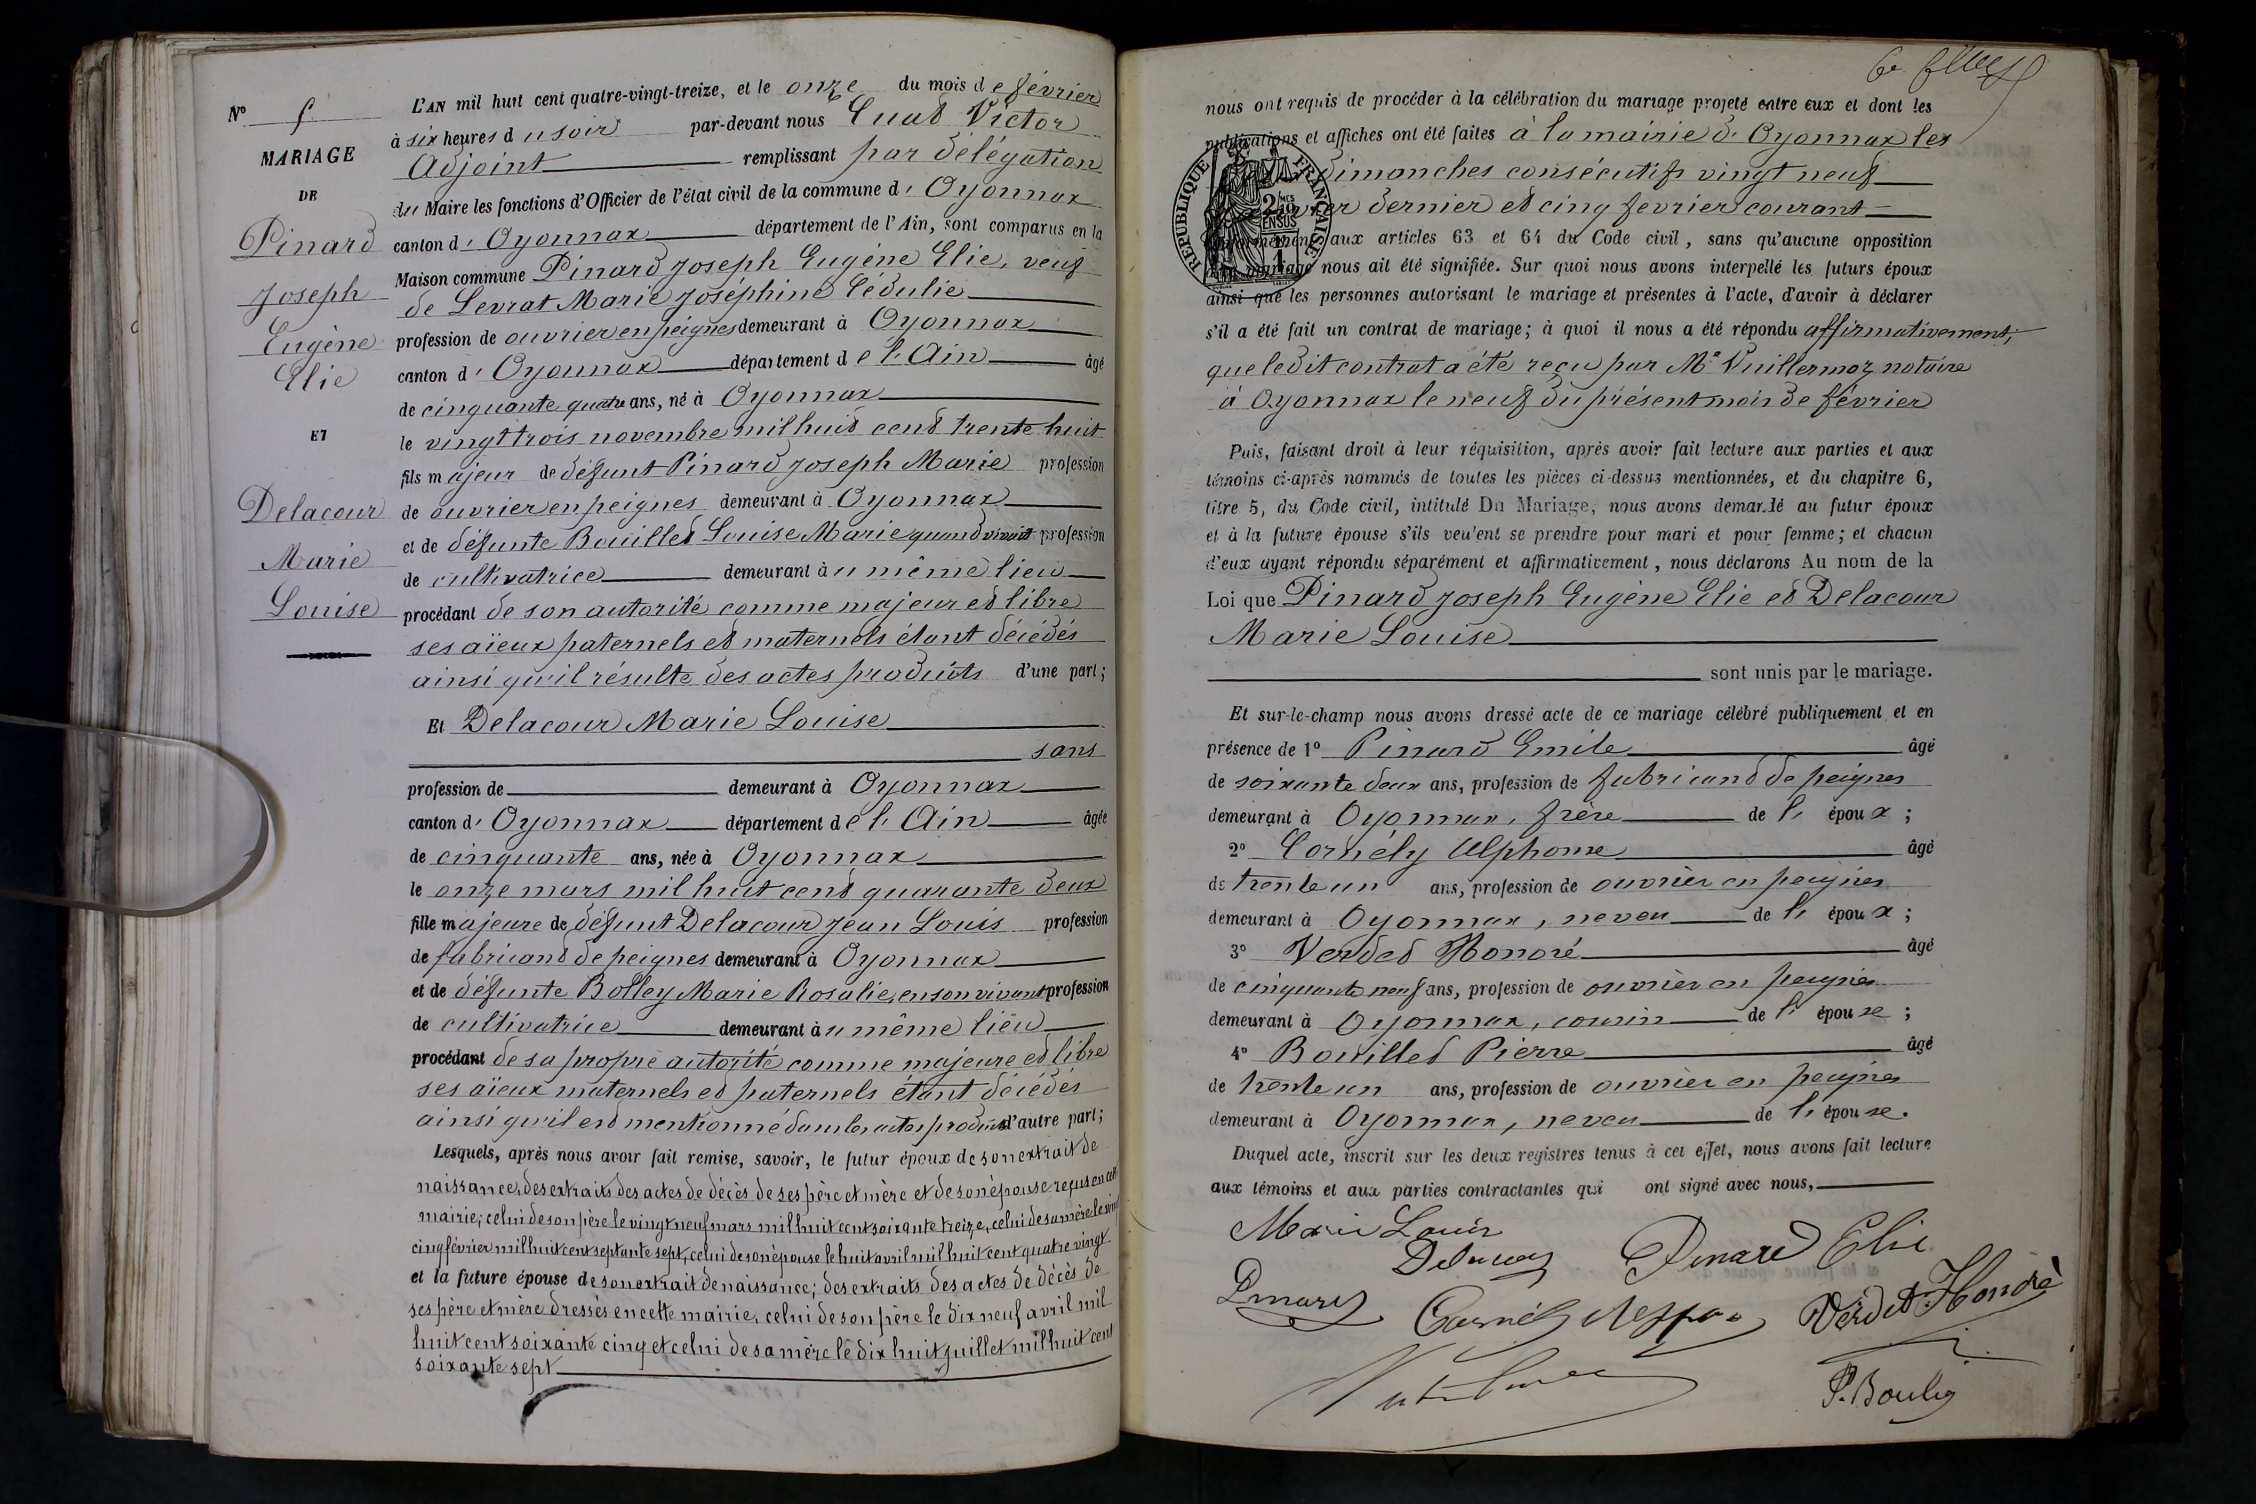 N° 5
MARIAGE
DE
Pinard
Joseph
Eugène
Elie
ET
Delacour
Marie
Louise
L'AN mil huit cent quatre-vingt-treize, et le onze du mois de février
à six heures du soir par-devant nous Cuat Victor
Adjoint remplissant par délégation
du Maire les fonctions d'Officier de l'état civil de la commune d' Oyonnax
canton d' Oyonnax département de l'Ain, sont comparus en la
Maison commune Pinard Joseph Eugène Elie, veuf
de Levrat Marie Joséphine Cédulie
profession de ouvrier en peignes demeurant à Oyonnax
canton d' Oyonnax département de l'Ain âgé
de cinquante quatre ans, né à Oyonnax
le vingt trois novembre mil huit cent trente huit
fils majeur de défunt Pinard Joseph Marie profession
de ouvrier en peignes demeurant à Oyonnax
et de défunte Bouillet Louise Marie quand vivait profession
de cultivatrice demeurant au même lieu
procédant de son autorité comme majeur et libre
ses aïeux paternels et maternels étant décédés
ainsi qu'il résulte des actes produits d'une part;
Et Delacour Marie Louise
sans
profession de demeurant à Oyonnax
canton d' Oyonnax département de l'Ain âgée
de cinquante ans, née à Oyonnax
le onze mars mil huit cent quarante deux
fille majeure de défunt Delacour Jean Louis profession
de fabricant de peignes demeurant à Oyonnax
et de défunte Bolley Marie Rosalie, en son vivant profession
de cultivatrice demeurant au même lieu
procédant de sa propre autorité comme majeure et libre
ses aïeux maternels et paternels étant décédés
ainsi qu'il est mentionné dans les actes produits d'autre part;
Lesquels, après nous avoir fait remise, savoir, le futur époux de son extrait de
naissance, des extraits des actes de décès de ses père et mère et de son épouse reçus en cette
mairie; celui de son père le vingt neuf mars mil huit cent soixante treize, celui de sa mère le vingt
cinq février mil huit cent septante sept, celui de son épouse le huit avril mil huit cent quatre vingt
et la future épouse de son extrait de naissance; des extraits des actes de décès de
ses père et mère dressés en cette mairie, celui de son père le dix neuf avril mil
huit cent soixante cinq et celui de sa mère le dix huit juillet mil huit cent
soixante sept
nous ont requis de procéder à la célébration du mariage projeté entre eux et dont les
publications et affiches ont été faites à la mairie d'Oyonnax les
dimanches consécutifs vingt neuf
janvier dernier et cinq fevrier courant
conformément aux articles 63 et 64 du Code civil, sans qu'aucune opposition
au mariage nous ait été signifiée. Sur quoi nous avons interpellé les futurs époux
ainsi que les personnes autorisant le mariage et présentes à l'acte, d'avoir à déclarer
s'il a été fait un contrat de mariage; à quoi il nous a été répondu affirmativement,
que ledit contrat a été reçu par Me Vuillermoz notaire
à Oyonnax le neuf du présent mois de février
REPUBLIQUE FRANÇAISE
2/10 MES
EN SUS
Puis, faisant droit à leur réquisition, après avoir fait lecture aux parties et aux
témoins ci-après nommés de toutes les pièces ci-dessus mentionnées, et du chapitre 6,
titre 5, du Code civil, intitulé Du Mariage, nous avons demandé au futur époux
et à la future épouse s'ils veulent se prendre pour mari et pour femme; et chacun
d'eux ayant répondu séparément et affirmativement, nous déclarons Au nom de la
Loi que Pinard Joseph Eugène Elie et Delacour
Marie Louise
sont unis par le mariage.
Et sur-le-champ nous avons dressé acte de ce mariage célébré publiquement et en
présence de 1° Pinard Emile âgé
de soixante deux ans, profession de fabricant de peignes
demeurant à Oyonnax, frère de l' époux;
2° Cornély Alphonse âgé
de trente un ans, profession de ouvrier en peignes
demeurant à Oyonnax, neveu de l' époux;
3° Verdet Honoré âgé
de cinquante neuf ans, profession de ouvrier en peignes
demeurant à Oyonnax, cousin de l' épouse;
4° Bouillet Pierre âgé
de trente un ans, profession de ouvrier en peignes
demeurant à Oyonnax, neveu de l' épouse.
Duquel acte, inscrit sur les deux registres tenus à cet effet, nous avons fait lecture
aux témoins et aux parties contractantes qui ont signé avec nous,
Marie Louise
Delacour Pinard Elie
Pinard Cornély Verdet Honoré
P. Bouillet